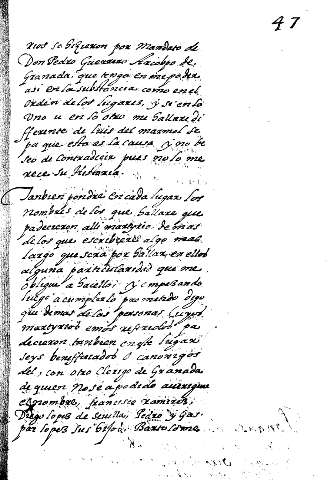 47
rios se hizieron por Mandato de
Don Pedro Guerrero Arçobpo de
Granada, que tengo en mi poder,
asi en la substancia como en el
orden de los lugares, y si en lo
uno u en lo otro me hallare di
fferente de luis del marmol se
pa que esta es la causa, y no de
seo de contradecir pues no lo me
rece su historia.
Tanbien pondre en cada lugar los
nombres de los que hallare que
padecieron alli martyrio, demas
de los que escribiere algo mas
largo que sera por hallar en ellos
alguna particularidad que me
oblique a hacello; y empeçando
luego a cumplir lo prometido digo
que demas de las personas cuyos
martyrios emos referidos pa
decieron tambien en este lugar
seys benefficiados o canonigos
del, con otro Clerigo de Granada
de quien no se a podido averiguar
el nombre, francisco ramirez,
Diego lopez de Sevilla, Pedro y Gas
par lopez sus hijos, Bartolome